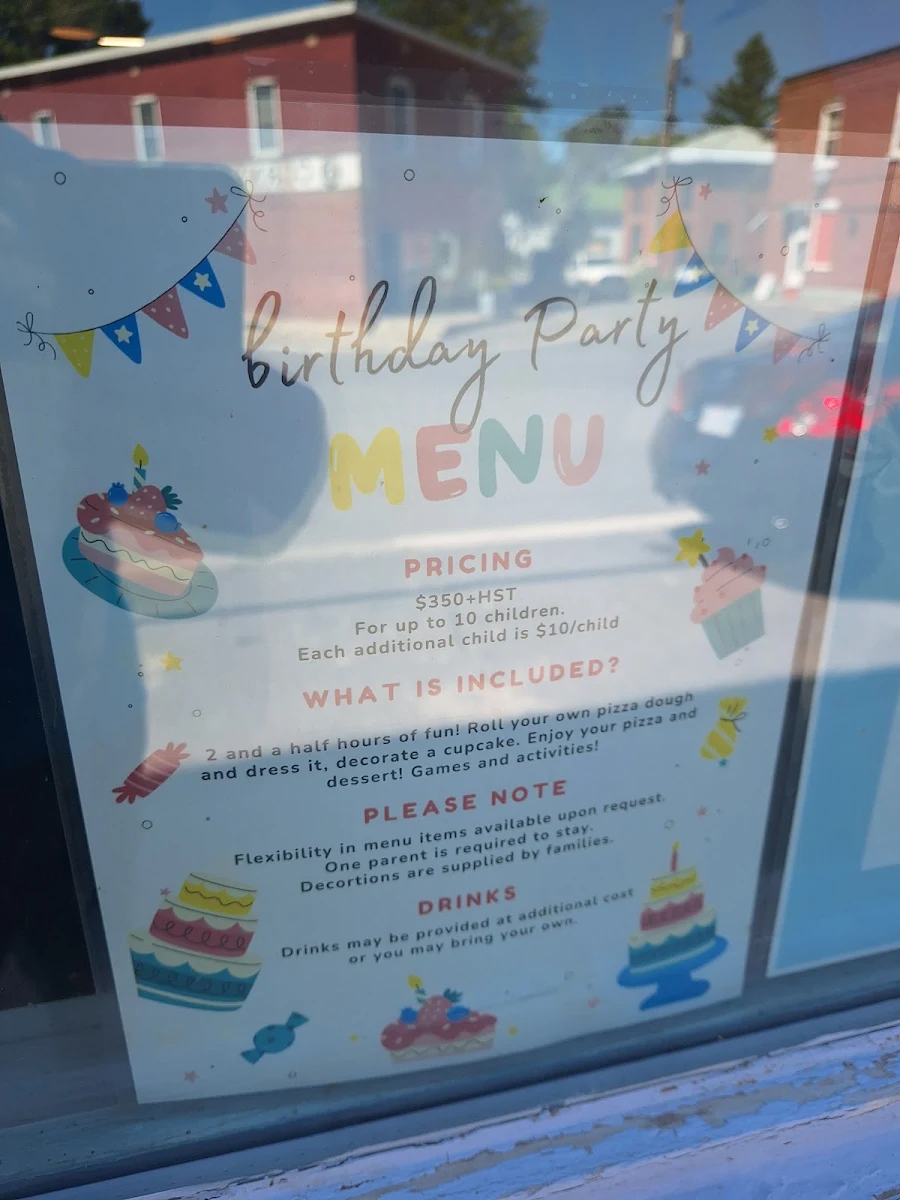 birthday Party
MENU
PRICING
$350+HST
For up to 10 children.
Each additional child is $10/child
WHAT IS INCLUDED?
2 and a half hours of fun! Roll your own pizza dough
and dress it, decorate a cupcake. Enjoy your pizza and
dessert! Games and activities!
PLEASE NOTE
Flexibility in menu items available upon request.
One parent is required to stay.
Decortions are supplied by families.
DRINKS
Drinks may be provided at additional cost
or you may bring your own.